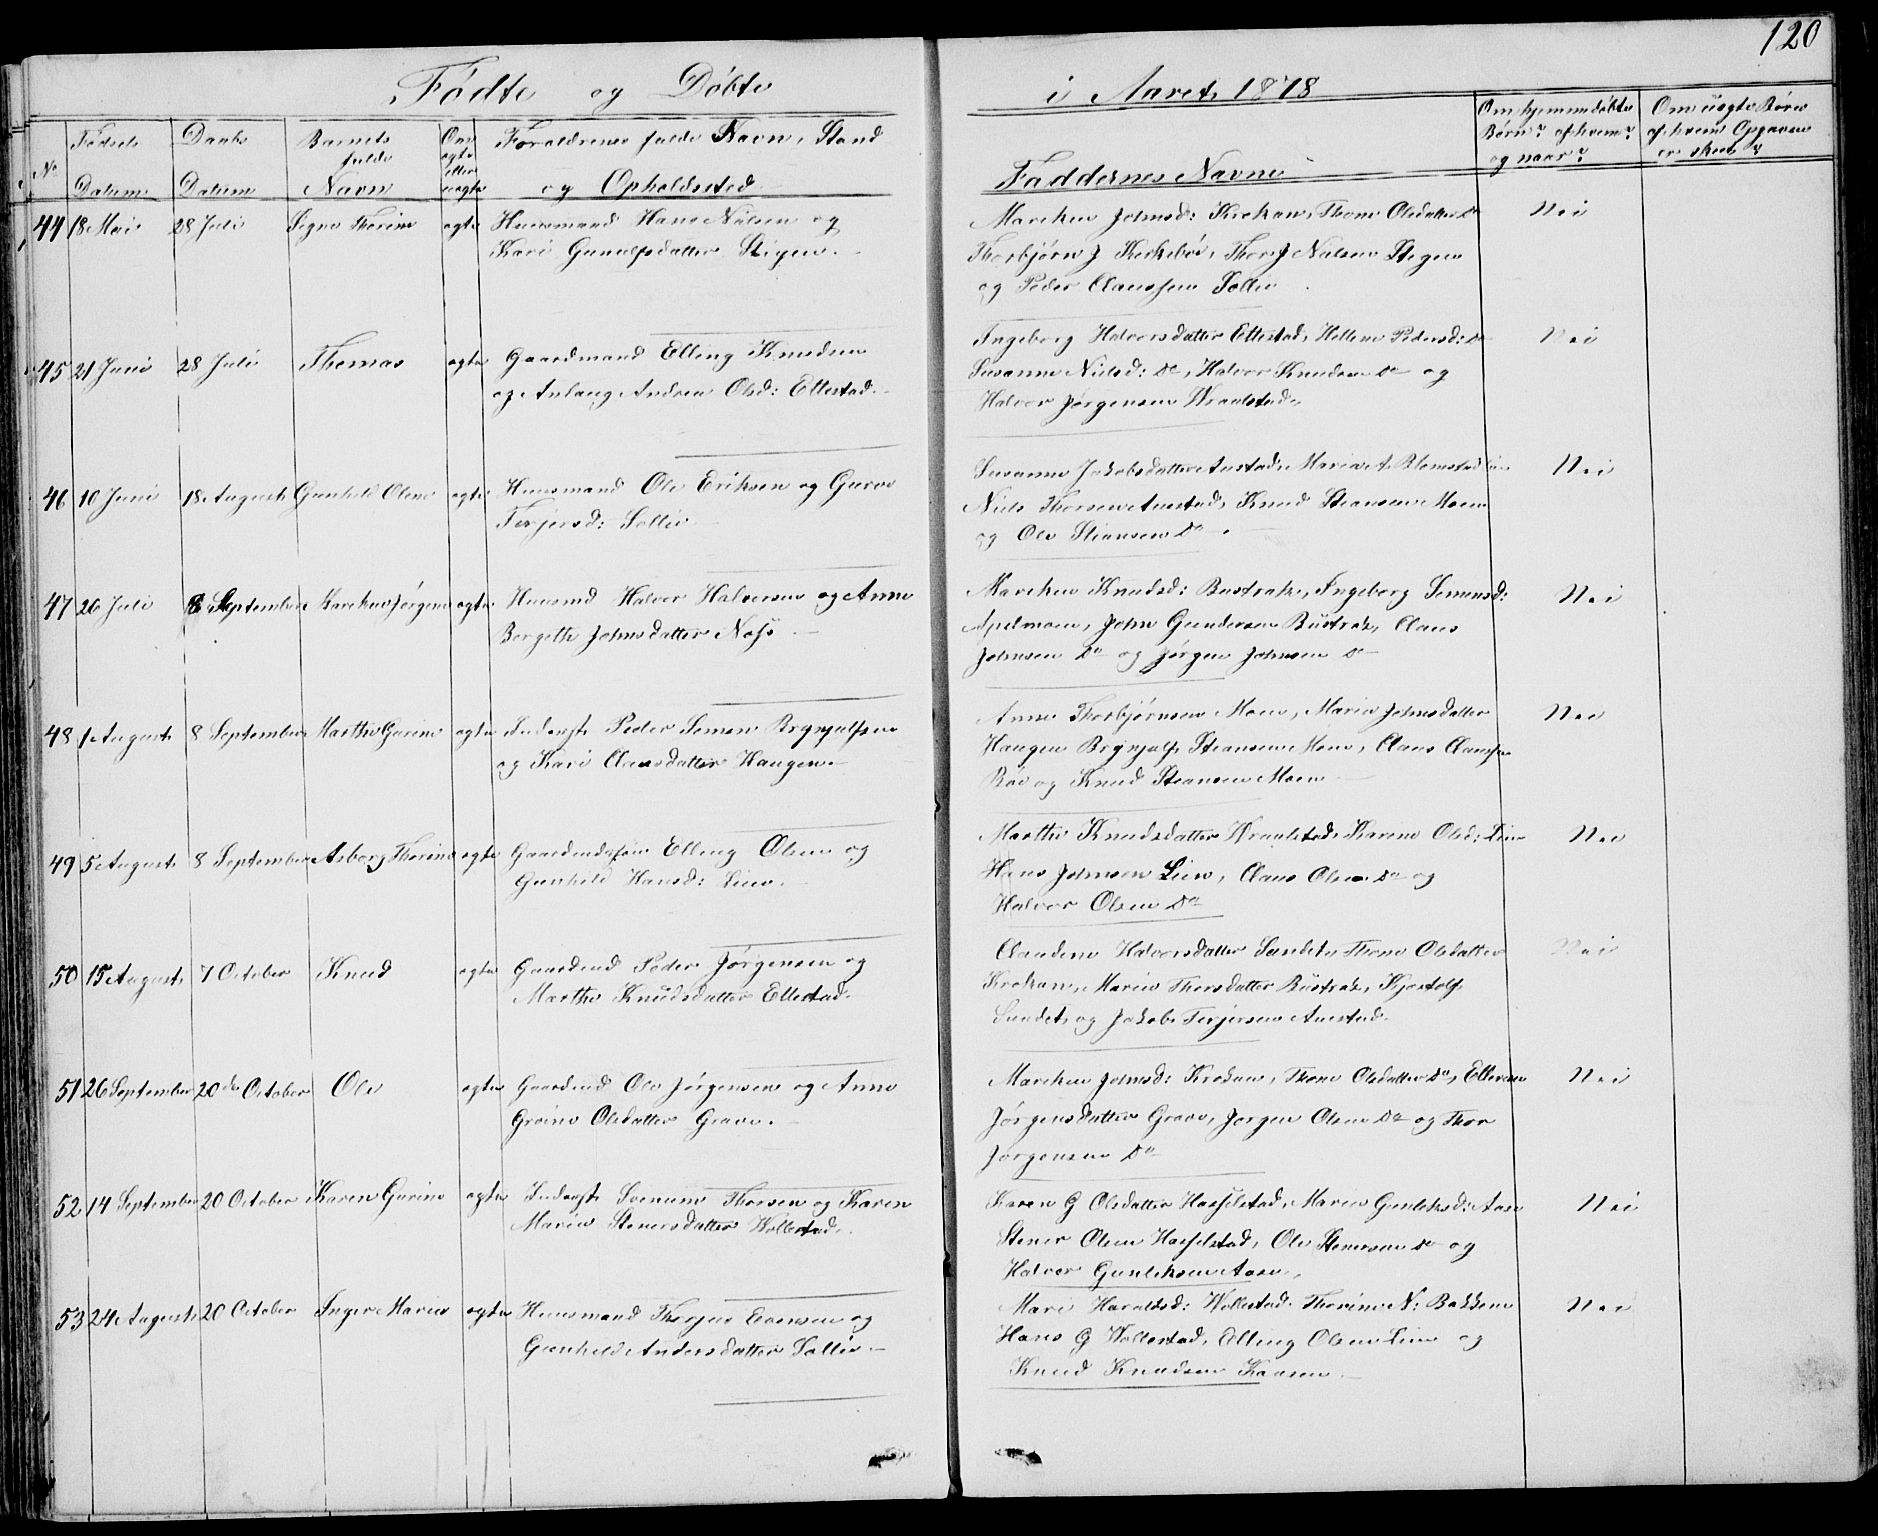 120
Fødte og Døbte
i Aaret 1878
No
Fødsels Datum
Daabs Datum
Barnets fulde Navn
Om ægte eller uægte
Forældrenes fulde Navn, Stand
og Opholdssted
Faddernes Navne
Om hjemmedøbte Børn? af hvem? og naar?
Om uægte Børn af hvem Opgaven er skeet?
44 18 Mai 28 Juli Signe Thorine ægte Huusmand Hans Nielsen og
Kari Gunulfsdatter Stigen.
Maren Johnsd: Krokan, Thone Olsdatter Do
Thorbjørn J Kirkebøe, Thor J Nielsen Stegen
og Peder Claussen Sollie
Nei
45 21 Juni 28 Juli Thomas ægte Gaardmand Elling Knudsen
og Anlaug Andrea Olsd: Ellestad.
Ingeborg Halvorsdatter Ellestad, Hellene Pedersd: Do
Susanne Nielsd: Do, Halvor Knudsen Do og
Halvor Jørgensen Wraalstad.
Nei
46 10 Juni 18 August Gunhild Oline ægte Huusmand Ole Eriksen og Guroe
Terjersd: Sollie
Susanne Jakobsdatter Austad, Maria A. Blomstad
Niels Thorsen Austad, Knud Steansen Moen
og Ole Steansen Do.
Nei
47 26 Juli 8 September Maren Jørgine ægte Huusmd Halvor Halvorsen og Anne
Bergethe Johnsdatter Næss.
Maren Knudsd: Bustrak, Ingeborg Semunsd:
Apelmoen, John Gundersen Bustrak, Claus
Johnsen Do og Jørgen Johnsen Do
Nei
48 1 August 8 September Marthe Gurine ægte Inderst Peder Semen Brynjulfsen
og Kari Clausdatter Haugen.
Anne Thorbjørnsen Moen, Marie Johnsdatter
Haugen Brynjulf Steansen Moen, Claus Claussen
Bøe og Knud Steansen Moen
Nei
49 5 August 8 September Asborg Thorine ægte Gaardmdssøn Elling Olsen og
Gunhild Hansd: Lien.
Marthe Knudsdatter Wraalstad, Karine Olsd: Lien
Hans Johnsen Lien, Claus Olsen Do og
Halvor Olsen Do
Nei
50 15 August 7 October Knud ægte Gaardmd Peder Jørgensen og
Marthe Knudsdatter Ellestad.
Claudine Halvorsdatter Sundet, Thone Olsdatter
Krokan, Marie Thorsdatter Bustrak, Kjøstolf
Sundet og Jakob Terjersen Austad.
Nei
51 26 September 20de October Ole ægte Gaardmd Ole Jørgensen og Anne
Groine Olsdatter Grave.
Maren Johnsd: Krokan, Thone Olsdatter Do, Ellevine
Jørgensdatter Grave, Jørgen Olsen Do og Thor
Jørgensen Do
Nei
52 14 September 20 October Karen Gurine ægte Inderst Svenum Thorsen og Karen
Marie Stenersdatter Wollestad.
Karen G Olsdatter Hasselstad, Marie Gunleksd: Aase
Stener Olsen Hasselstad, Ole Stenersen Do og
Halvor Gunleksen Aase.
Nei
53 24 August 20 October Inger Marie ægte Huusmand Therjus Evensen og
Gunhild Andersdatter Sollie.
Mari Haraldsd: Wollestad, Thorine N: Bakken
Hans G Wollestad, Elling Olsen Lien og
Knud Knudsen Kaasen
Nei